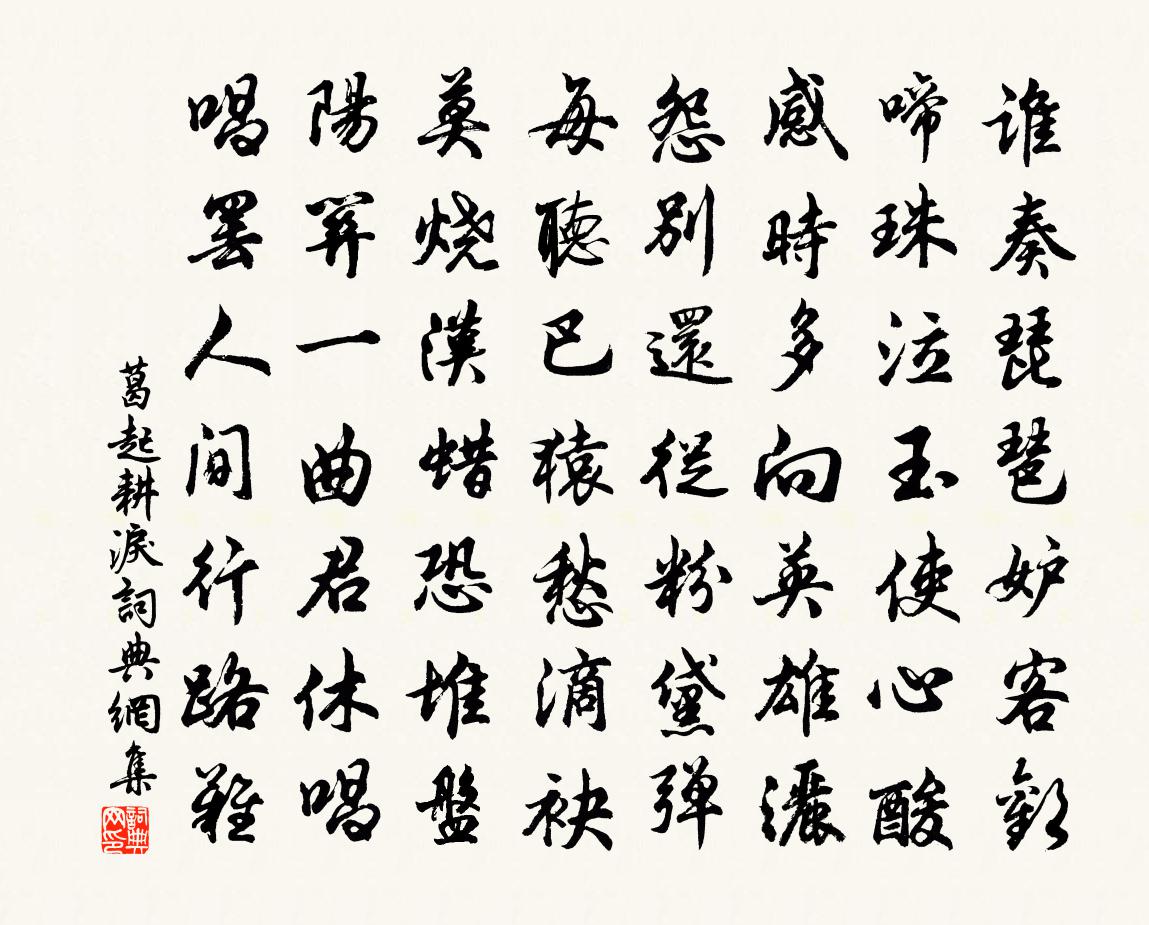 谁奏琵琶妒客歡
啼珠泣玉使心酸
感時多向英雄灑
怨別還從粉黛弹
每聽巴猿愁滴袂
莫烧漢蜡恐堆盤
陽関一曲君休唱
唱罢人間行路難
葛起耕淚詞典網集
詞典网印